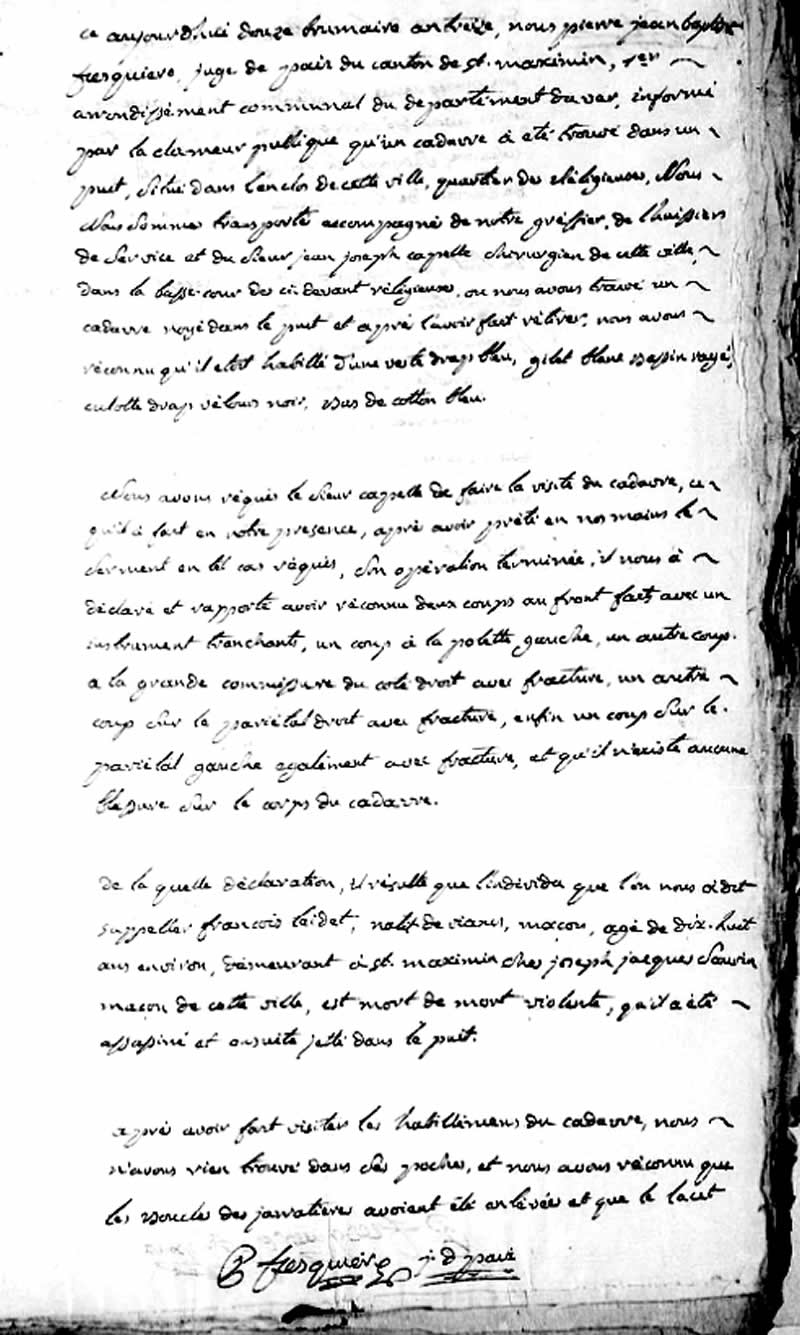 ce aujourd'hui douze brumaire an treize, nous pierre jean baptiste
fresquiere, juge de paix du canton de st. maximin, 1er
arrondissement communal du departement du var, informé
par la clameur publique qu'un cadavre à eté trouvé dans un
puit, situé dans l'enclos de cette ville, quartier des réligieuses, Nous
Nous sommes transporté accompagné de notre gréffier, de l'huissiers
de service et du sieur jean joseph capelle chirurgien de cette ville,
dans la basse-cour des ci-devant réligieuses, ou nous avons trouvé un
cadavre noyé dans le puit et après l'avoir fait rétirer, nous avons
réconnu qu'il etoit habillé d'une veste drap bleu, gilet blanc bassin rayé,
culotte drap vélours noir, bas de cotton bleu.
Nous avons réquis le sieur capelle de faire la visite du cadavre, ce
qu'il à fait en notre presence, apré avoir prêté en nos mains le
serment en tél cas réquis, son opération terminée, il nous à
déclaré et rapporté avoir réconnu deux coups au front faits avec un
instrument tranchants, un coup à la polette gauche, un autre coup
a la grande commissure du coté droit avec fracture, un autre
coup sur le pariétal droit avec fracture, enfin un coup sur le
pariétal gauche egalément avec fracture, et qu'il n'existe aucune
blessure sur le corps du cadavre.
de la quelle déclaration, il résulte que l'individu que l'on nous à dit
s'appeller francois leidet, natif de vians, maçon, agé de dix-huit
ans environ, démeurant à st. maximin chez joseph jacques sauvin
maçon de cette ville, est mort de mort violente, qu'il a été
assassiné et ensuite jetté dans le puit.
apré avoir fait visiter les habillémens du cadavre, nous
n'avons rien trouvé dans ses poches, et nous avons réconnu que
les boucles des jarratières avoient été enlévées et que le lacet
fresquiere j. d paix